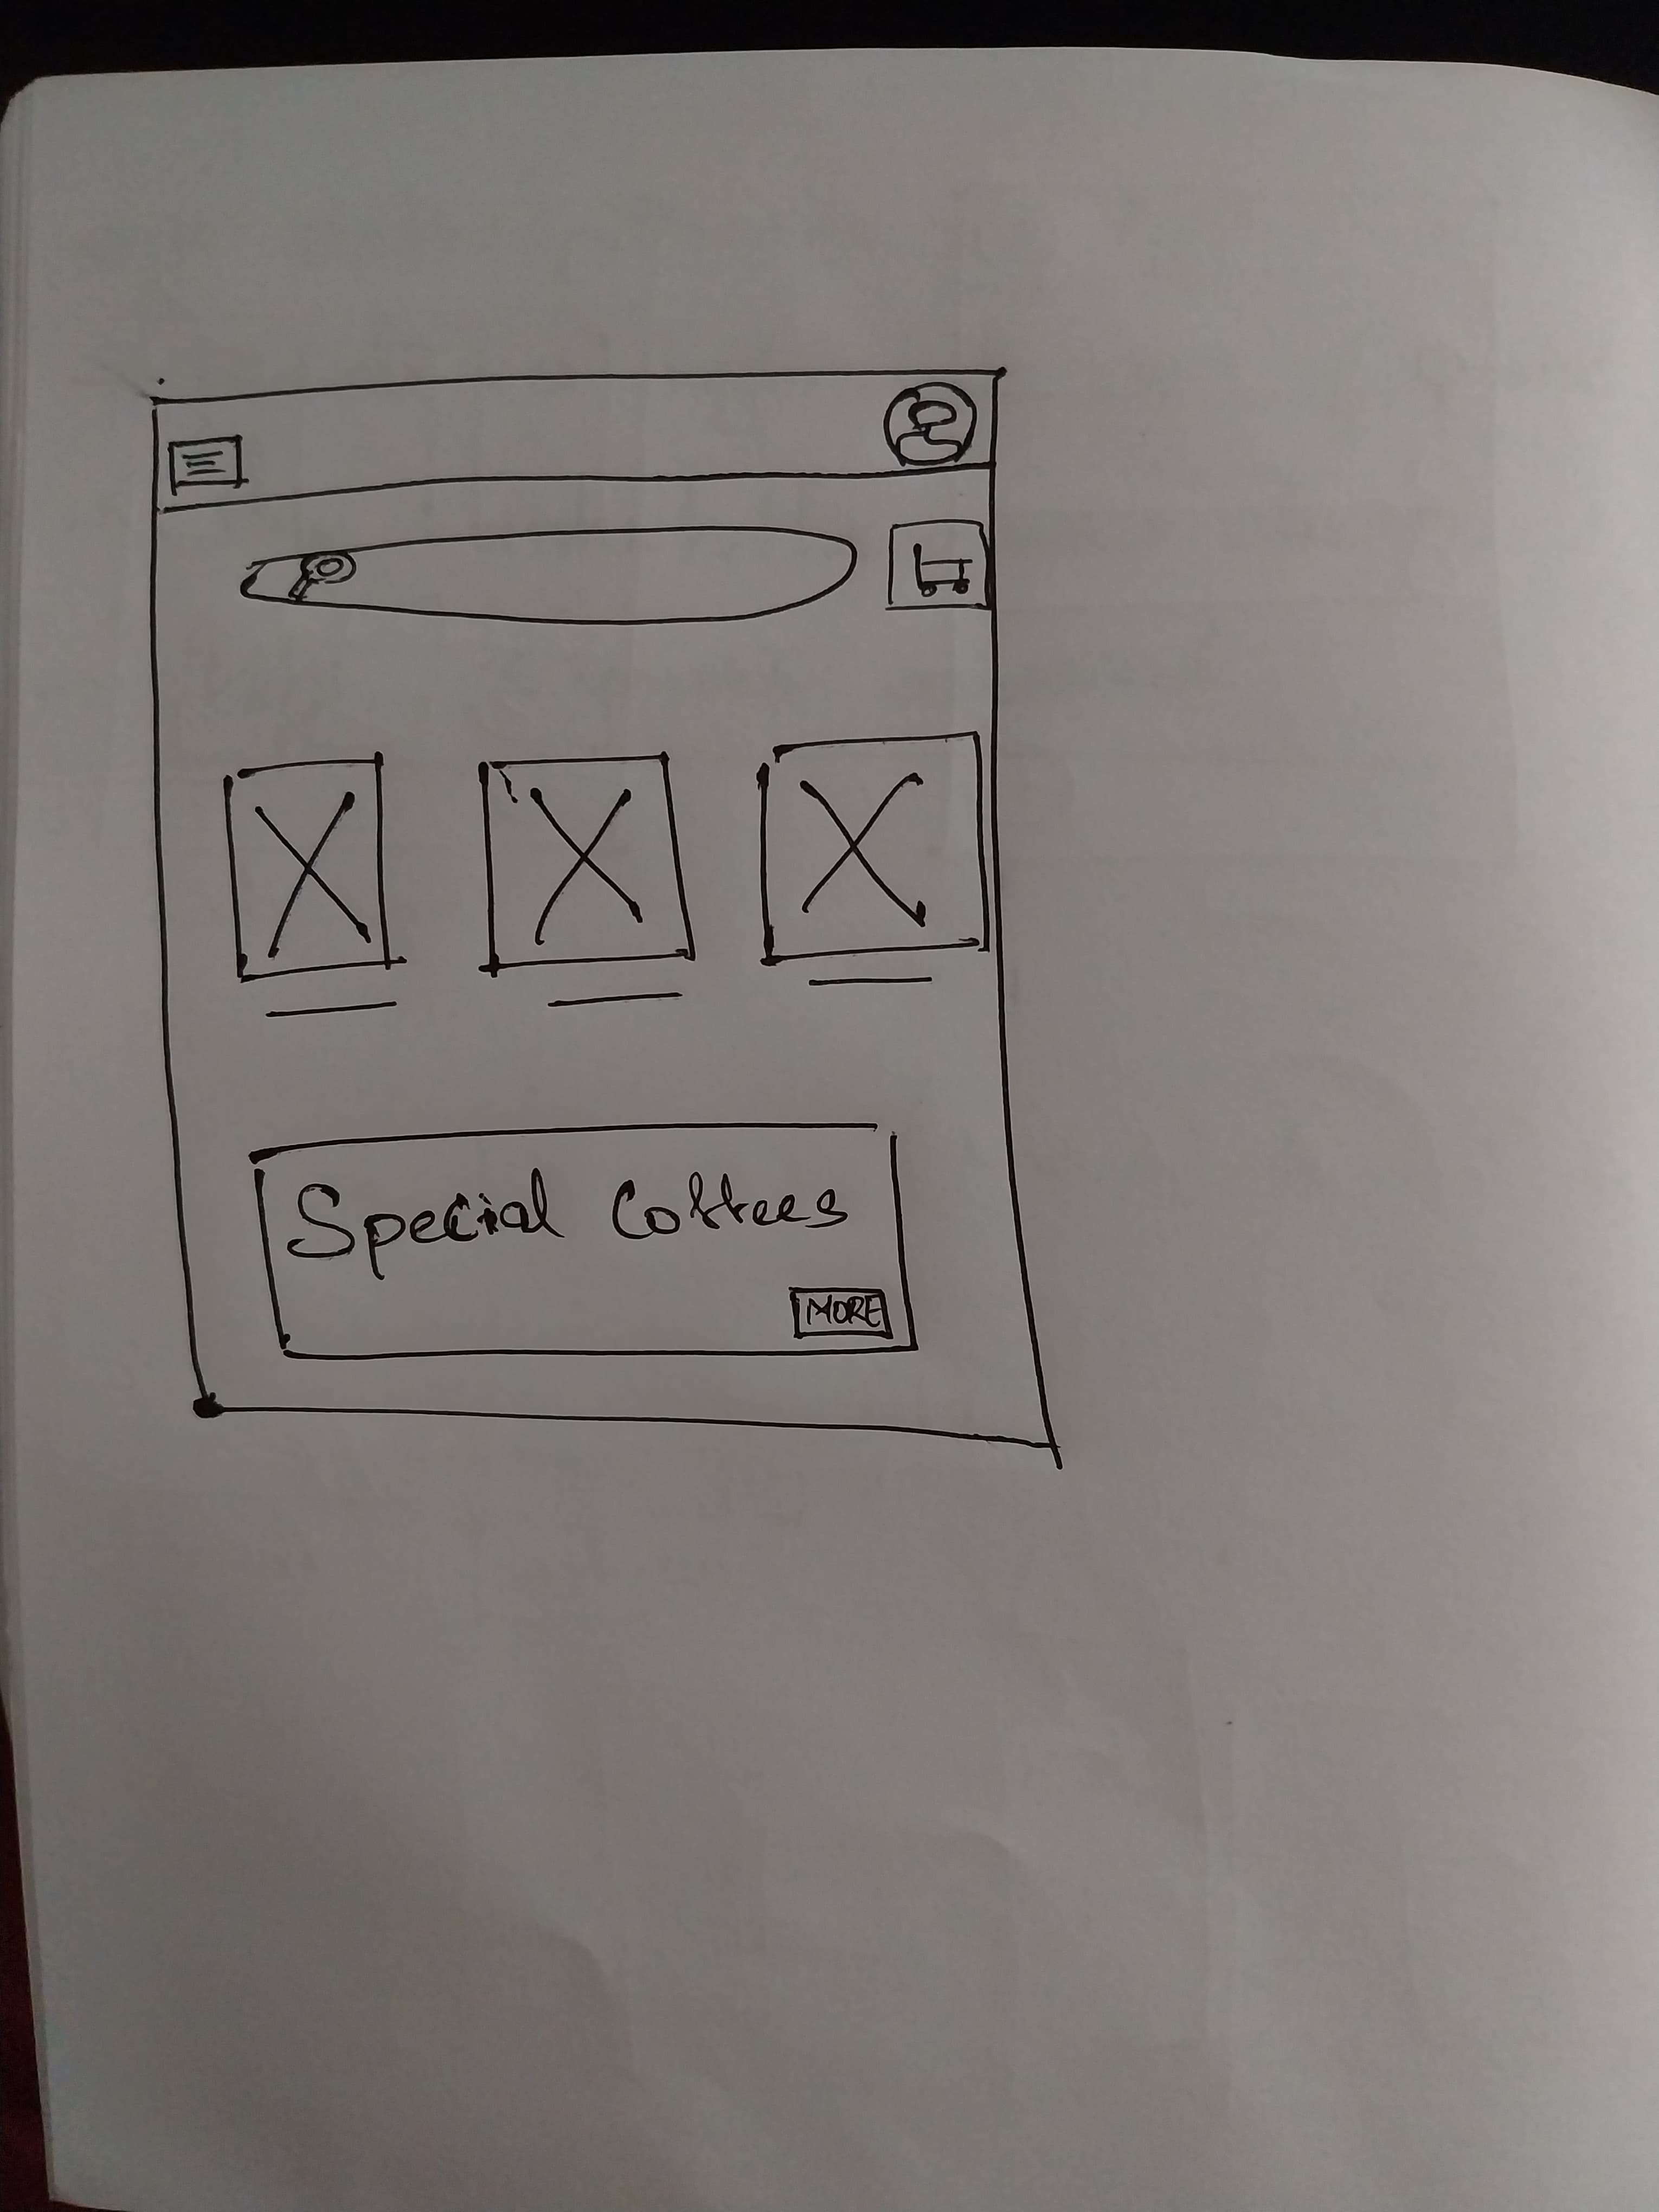 Special Coffees
MORE